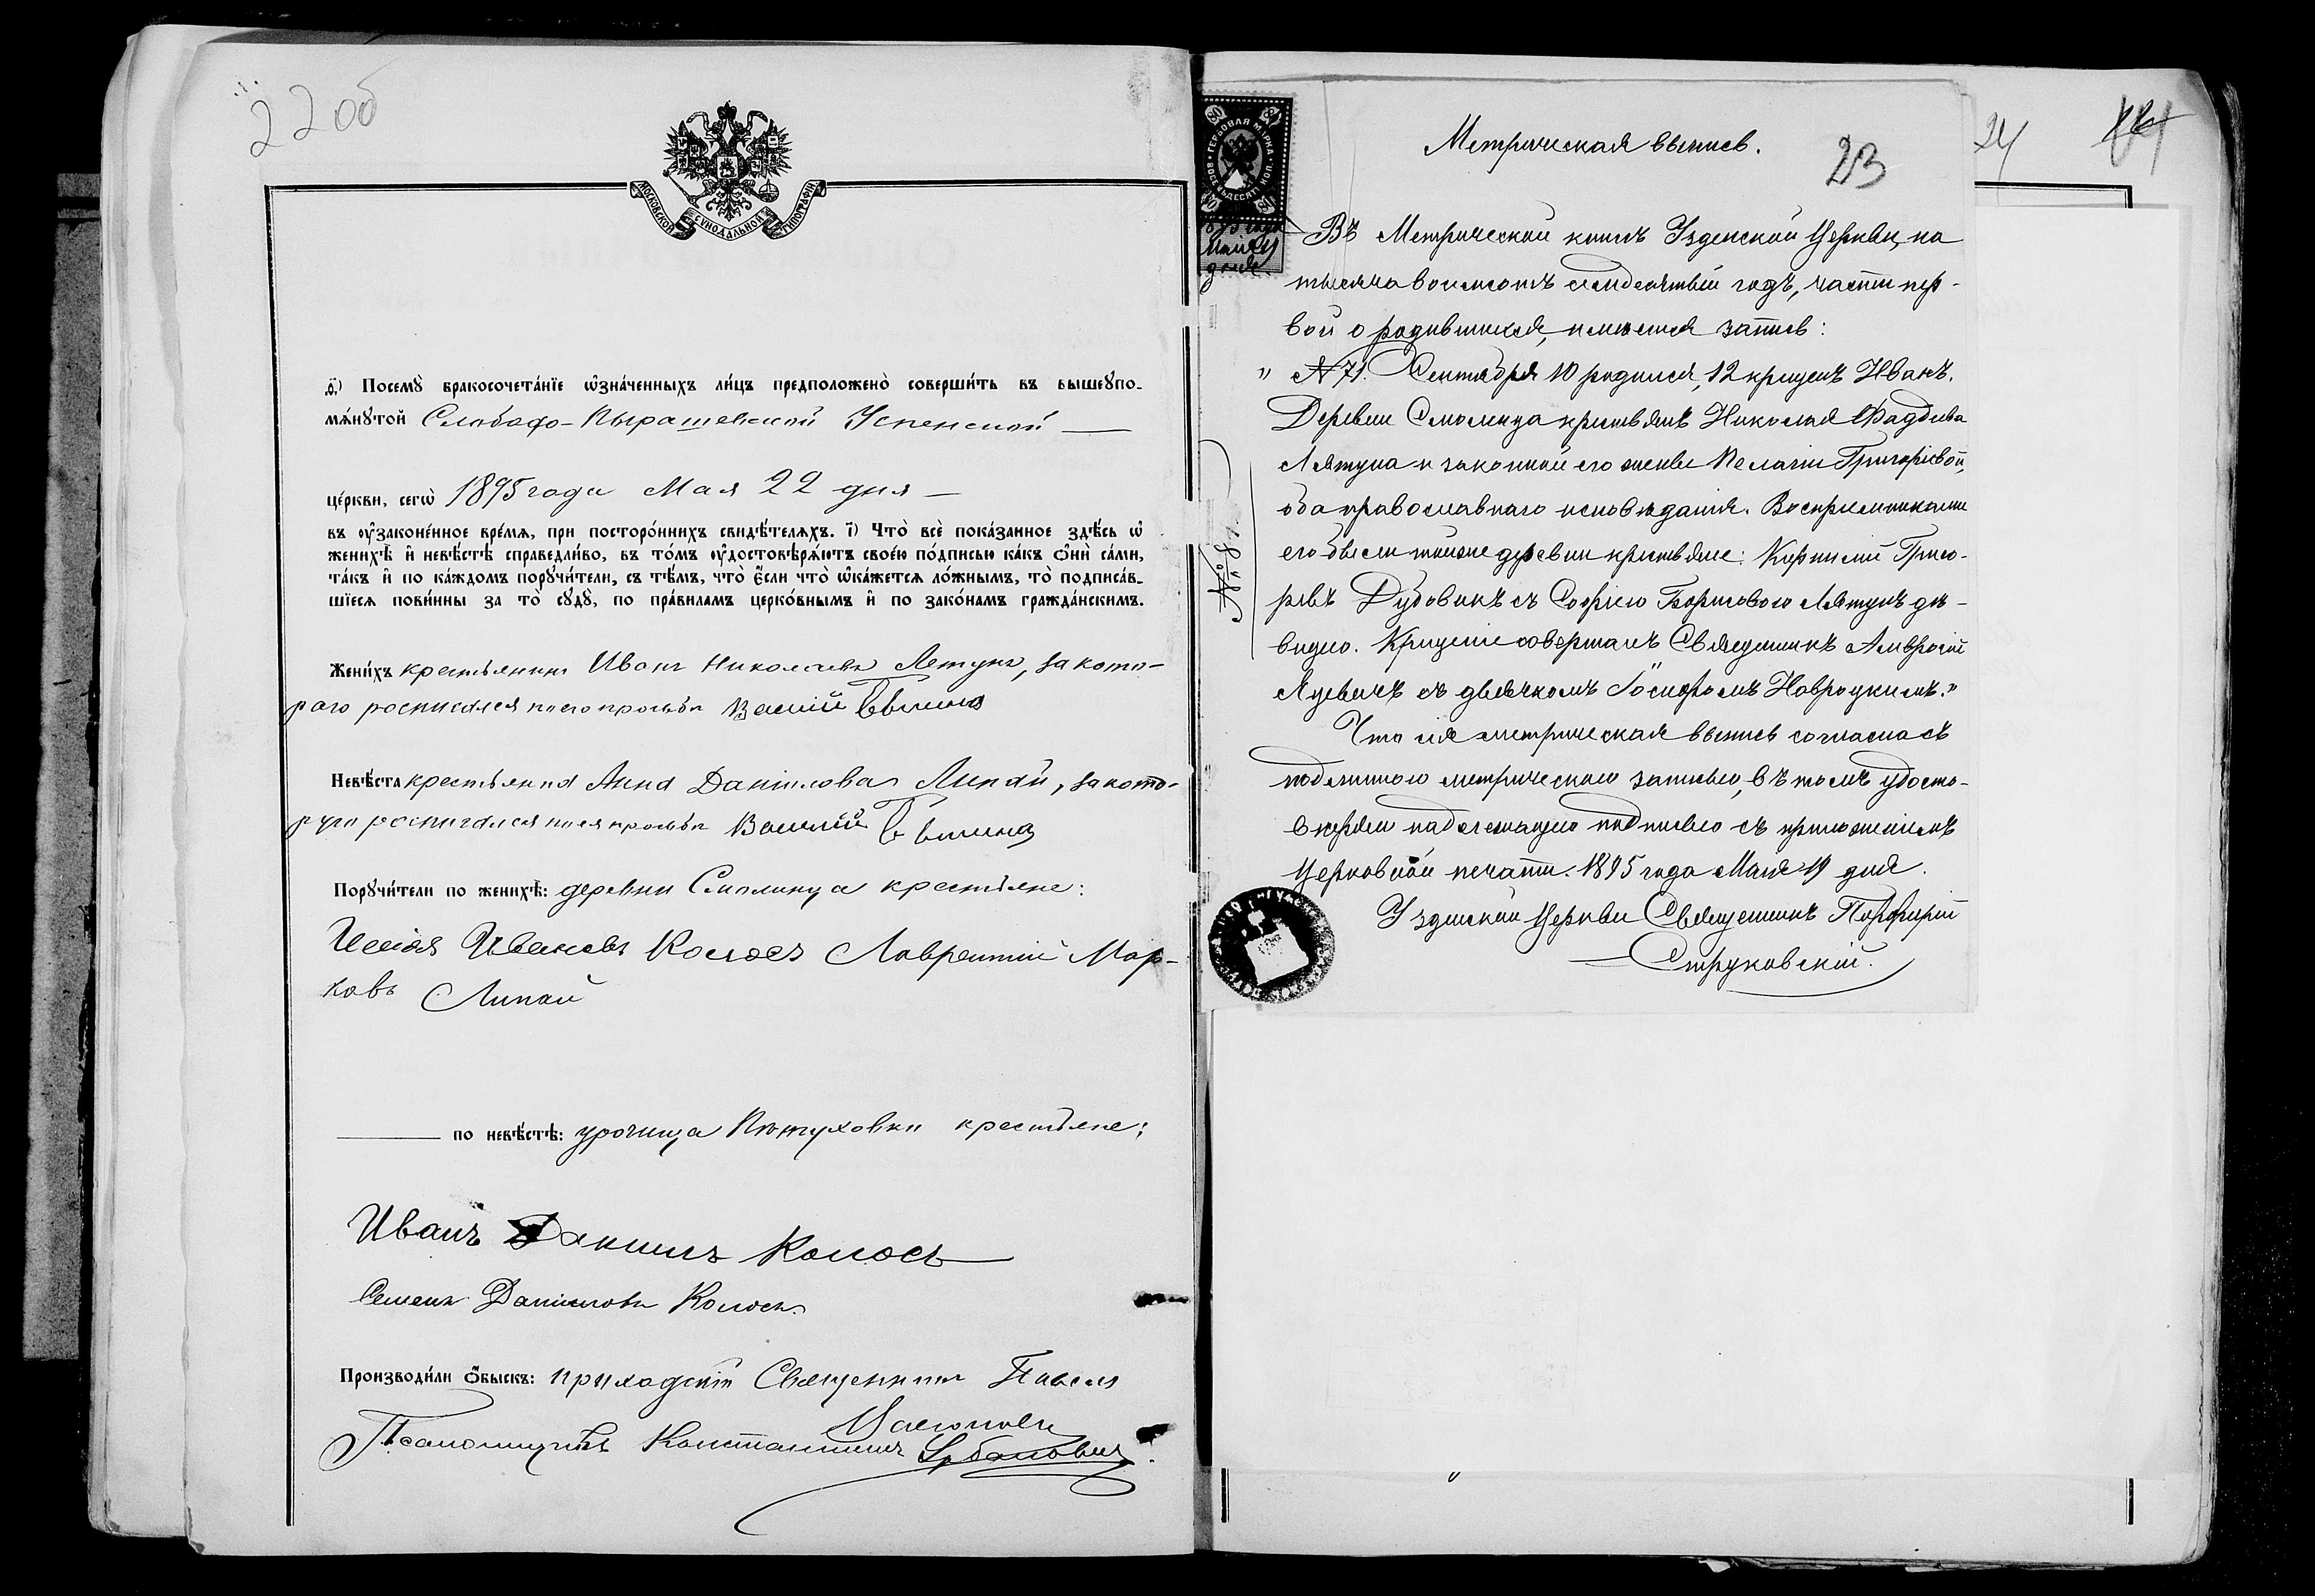 22об
МОСКОВСКОЙ СѴНОДАЛЬНОЙ ТИПОГРАФІИ.
Ѳ҃) Посемꙋ̀ бракосочета́нїе ѡ҆зна́ченныхъ ли́цъ предположено̀ соверши́ть въ вышеꙋпо-
мѧ́нꙋтой Слободо-Пырашевской Успенской —
це́ркви, сегѡ̀ 1895 года Мая 22 дня —
въ ᲂу҆зако́ненное вре́мѧ, при посторо́ннихъ свидѣ́телѧхъ. І҃) Что̀ всѐ пока́занное здѣ́сь ѡ҆
женихѣ̀ и҆ невѣ́стѣ справедли́во, въ то́мъ ᲂу҆достовѣрѧ́ютъ свое́ю по́дписью ка́къ ѻ҆нѝ са́ми,
та́къ и҆ по ка́ждомъ порꙋчи́тели, съ тѣ́мъ, что̀ є҆́сли что̀ ѡ҆ка́жетсѧ ло́жнымъ, то̀ подписа́в-
шїесѧ пови́нны за то̀ сꙋдꙋ̀, по пра́виламъ церко́внымъ и҆ по зако́намъ гражда́нскимъ.
Жени́хъ крестьянинъ Иванъ Николаевъ Летунъ, за кото-
раго росписался по его просьбѣ
Невѣ́ста крестьянка Анна Данiилова Липай, за кото-
рую росписался по ея просьбѣ
Порꙋчи́тели по женихѣ̀: деревни Смолинца крестьяне:
Ивановъ Колосъ Лаврентiй Мар-
ковъ Липай
по невѣ́стѣ: урочища Пѣтуховки крестьяне:
Иванъ Колосъ
Семенъ Данииловъ Колосъ
Производи́ли ѻ҆́быскъ: приходскiй Священникъ Павелъ
Псаломщикъ Константинъ Урбановичъ.
Метрическая выпись.
23
24
ГЕРБОВАЯ МАРКА ВОСЕМЬДЕСЯТЪ КОП.
80
1895 года
Мая 19
дня
№ 81.
Въ Метрической книгѣ Узденской Церкви, на
тысяча восемьсотъ семидесятый годъ, части пер-
вой о родившихся, имѣется запись:
„ № 71. Сентября 10 родился, 12 крещенъ Иванъ.
Деревни Смолинца крестьянъ Николая Фаддеева
Лятуна и законной его жены Пелагiи Григорiевой,
оба православнаго исповѣданія. Воспріемниками
его были тойже деревни крестьяне: Корнилій Григо-
рьевъ Дубовикъ съ Софiею Борисовою Лятунъ дѣ-
вицею. Крещеніе совершалъ Священникъ Амвросiй
Яцевичъ съ дьячкомъ Iосифомъ Навроцкимъ.“
Что сія метрическая выпись согласна съ
подлинною метрическою записью, въ томъ удосто-
вѣряю надлежащею подписью съ приложеніемъ
церковной печати. 1895 года Мая 19 дня.
Узденской Церкви Священникъ Порфирій
Струковскій.